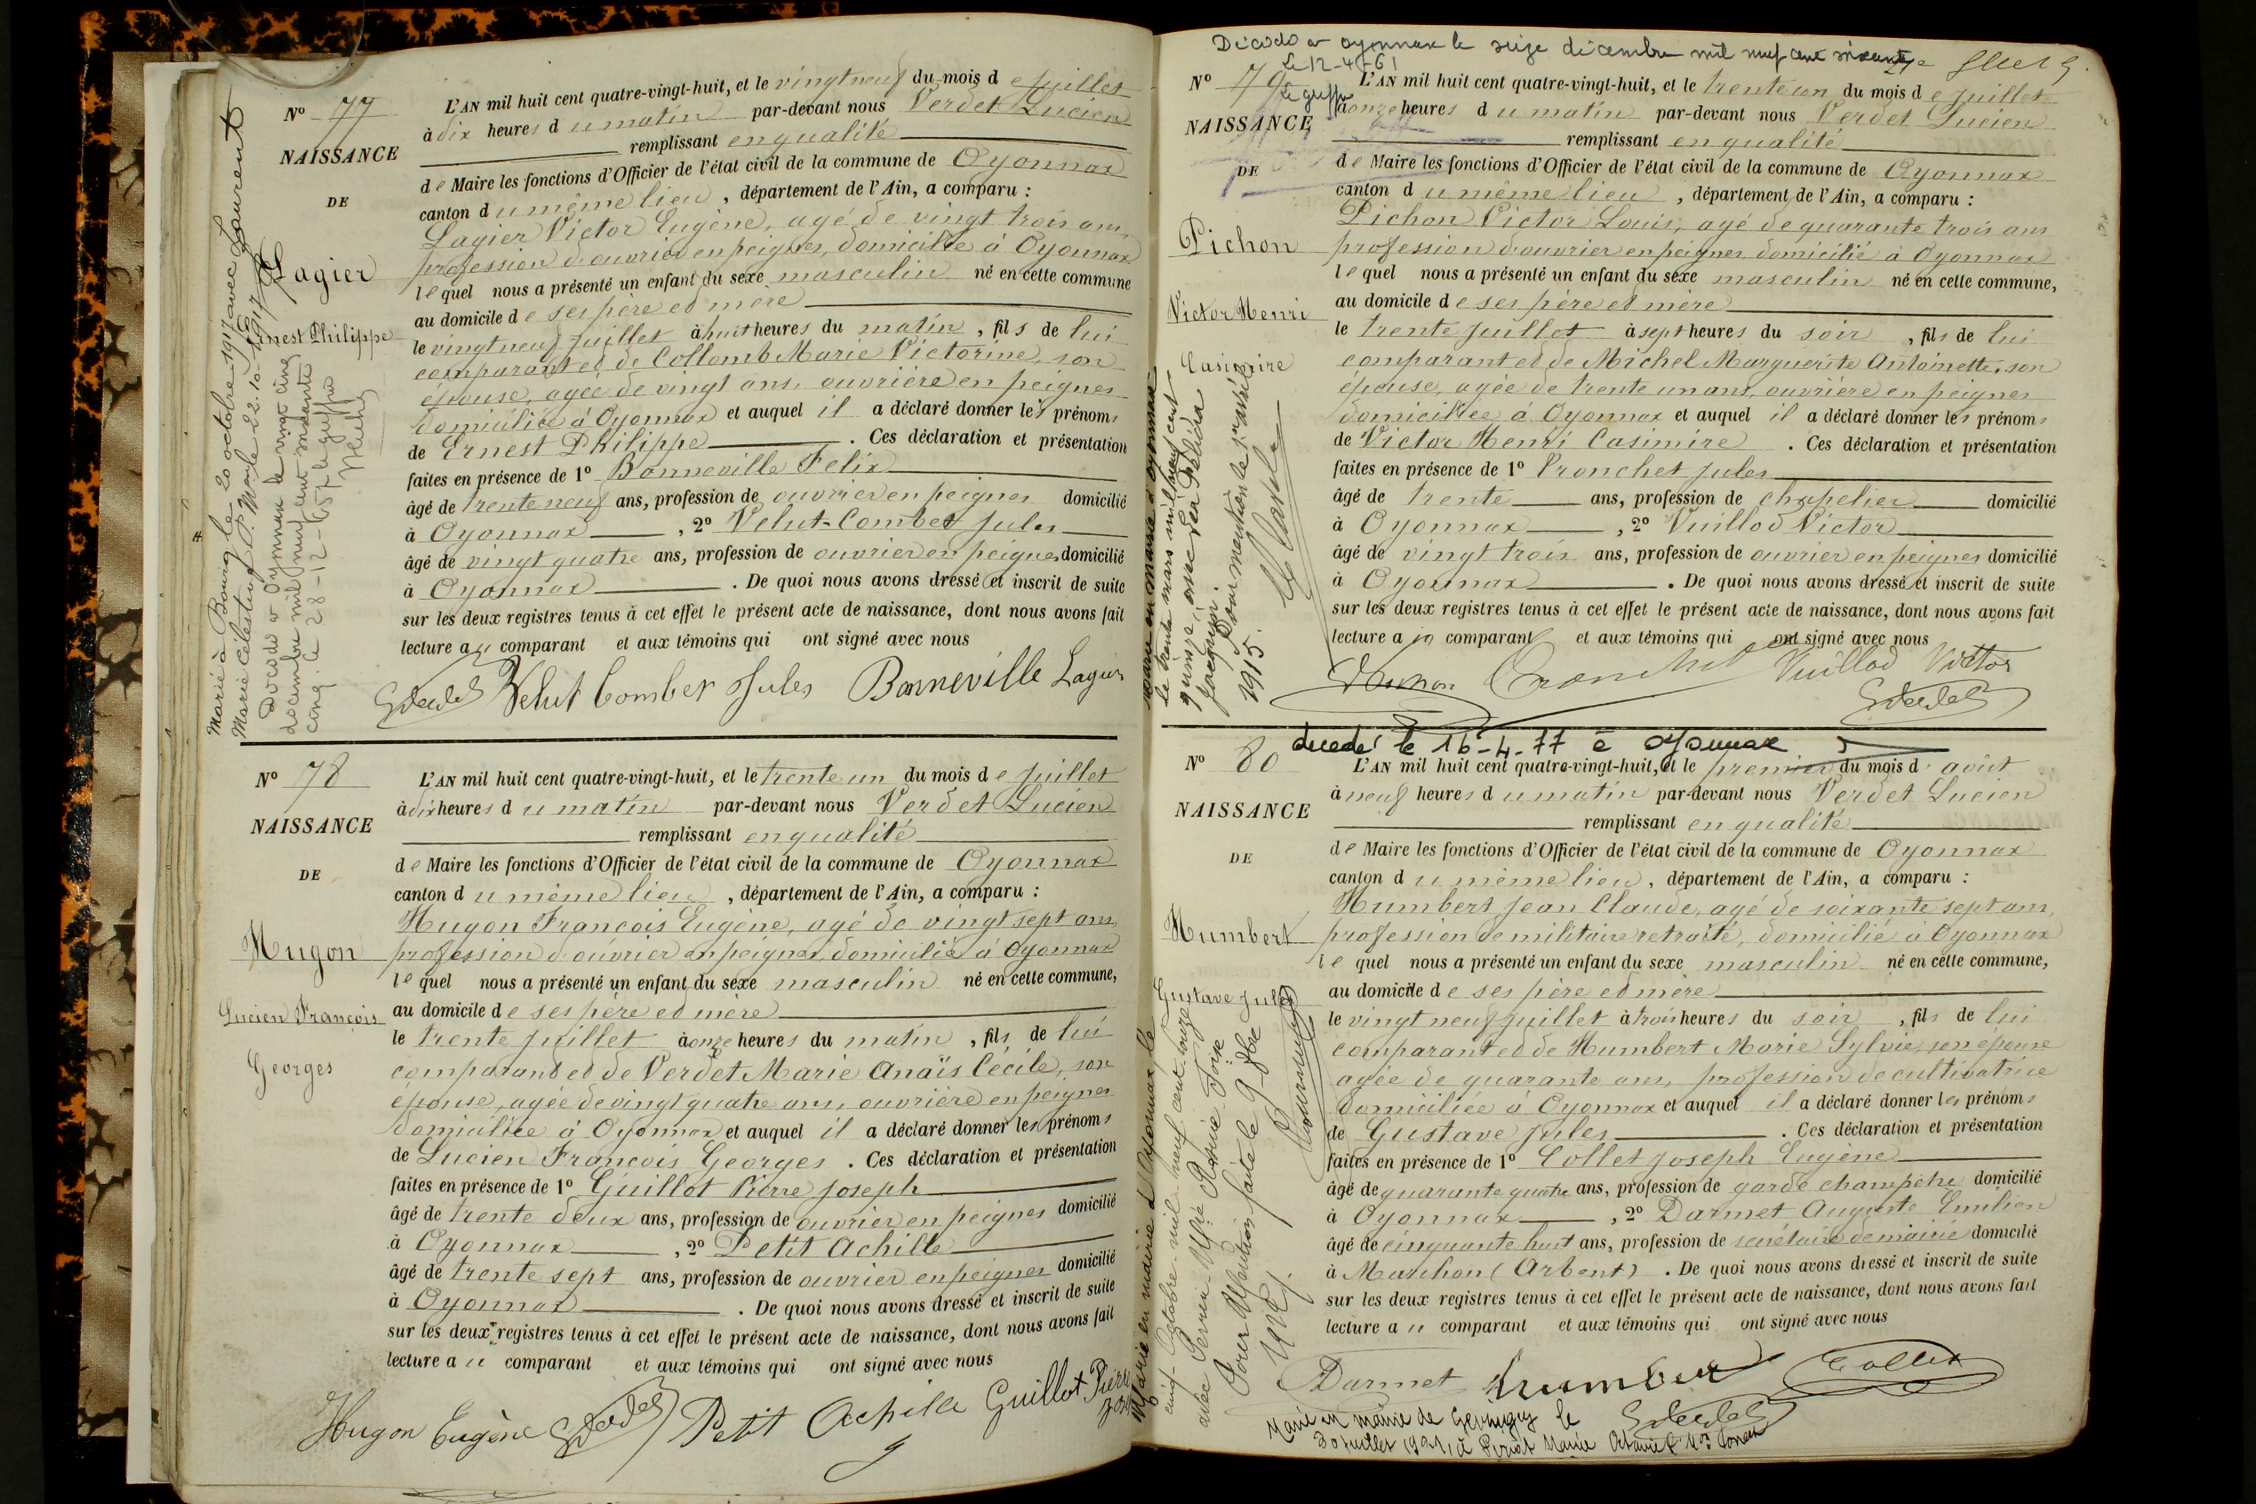 N° 77
NAISSANCE
DE
Lagier
Ernest Philippe
Marié à Bourg le 20 octobre 1917 avec Laurent
Marie Célestine P. M. le 22.10.1917
Décédé à Oyonnax le vingt cinq
décembre mil neuf cent soixante
cinq. le 28-12-65 le greffier
L'AN mil huit cent quatre-vingt-huit, et le vingt neuf du mois de Juillet
à dix heures du matin par-devant nous Verdet Lucien
remplissant en qualité
de Maire les fonctions d'Officier de l'état civil de la commune de Oyonnax
canton du même lieu, département de l'Ain, a comparu :
Lagier Victor Eugène, agé de vingt trois ans,
profession d'ouvrier en peignes, domicilié à Oyonnax
lequel nous a présenté un enfant du sexe masculin né en cette commune
au domicile de ses père et mère
le vingt neuf juillet à huit heures du matin, fils de lui
comparant et de Collomb Marie Victorine, son
épouse, agée de vingt ans, ouvrière en peignes
domiciliée à Oyonnax et auquel il a déclaré donner les prénoms
de Ernest Philippe. Ces déclaration et présentation
faites en présence de 1° Bonneville Felix
âgé de trente neuf ans, profession de ouvrier en peignes domicilié
à Oyonnax, 2° Velut-Combet Jules
âgé de vingt quatre ans, profession de ouvrier en peignes domicilié
à Oyonnax. De quoi nous avons dressé et inscrit de suite
sur les deux registres tenus à cet effet le présent acte de naissance, dont nous avons fait
lecture au comparant et aux témoins qui ont signé avec nous
Verdet Velut Combet Jules Bonneville Lagier
N° 78
NAISSANCE
DE
Hugon
Lucien François
Georges
L'AN mil huit cent quatre-vingt-huit, et le trente un du mois de Juillet
à dix heures du matin par-devant nous Verdet Lucien
remplissant en qualité
de Maire les fonctions d'Officier de l'état civil de la commune de Oyonnax
canton du même lieu, département de l'Ain, a comparu :
Hugon François Eugène, agé de vingt sept ans,
profession d'ouvrier en peignes, domicilié à Oyonnax
lequel nous a présenté un enfant du sexe masculin né en cette commune,
au domicile de ses père et mère
le trente juillet à onze heures du matin, fils de lui
comparant et de Verdet Marie Anaïs Cécile, son
épouse, agée de vingt quatre ans, ouvrière en peignes
domiciliée à Oyonnax et auquel il a déclaré donner les prénoms
de Lucien François Georges. Ces déclaration et présentation
faites en présence de 1° Guillot Pierre Joseph
âgé de trente deux ans, profession de ouvrier en peignes domicilié
à Oyonnax, 2° Petit Achille
âgé de trente sept ans, profession de ouvrier en peignes domicilié
à Oyonnax. De quoi nous avons dressé et inscrit de suite
sur les deux registres tenus à cet effet le présent acte de naissance, dont nous avons fait
lecture au comparant et aux témoins qui ont signé avec nous
Hugon Eugène Verdet Petit Achille Guillot Pierre
Décédé à Oyonnax le seize décembre mil neuf cent soixante
Le 12-4-61
Le greffier
N° 79
NAISSANCE
DE
Pichon
Victor Henri
Casimire
Marié en mairie d'Oyonnax
le trente mars mil neuf cent
quinze, avec Léa
Pour mention le
1915.
L'AN mil huit cent quatre-vingt-huit, et le trente un du mois de Juillet
à onze heures du matin par-devant nous Verdet Lucien
remplissant en qualité
de Maire les fonctions d'Officier de l'état civil de la commune de Oyonnax
canton du même lieu, département de l'Ain, a comparu :
Pichon Victor Louis, agé de quarante trois ans
profession d'ouvrier en peignes domicilié à Oyonnax
lequel nous a présenté un enfant du sexe masculin né en cette commune,
au domicile de ses père et mère
le trente juillet à sept heures du soir, fils de lui
comparant et de Michel Marguerite Antoinette, son
épouse, agée de trente un ans, ouvrière en peignes
domiciliée à Oyonnax et auquel il a déclaré donner les prénoms
de Victor Henri Casimire. Ces déclaration et présentation
faites en présence de 1° Pronchet Jules
âgé de trente ans, profession de chapelier domicilié
à Oyonnax, 2° Vuillod Victor
âgé de vingt trois ans, profession de ouvrier en peignes domicilié
à Oyonnax. De quoi nous avons dressé et inscrit de suite
sur les deux registres tenus à cet effet le présent acte de naissance, dont nous avons fait
lecture au comparant et aux témoins qui ont signé avec nous
Vuillod Victor
Verdet
décédé le 16-4-77 à Oyonnax
N° 80
NAISSANCE
DE
Humbert
Gustave Jules
Marié en mairie d'Oyonnax le
cinq Octobre mil neuf cent onze
avec Perrin
Pour Mention faite le 9 8bre
1911.
L'AN mil huit cent quatre-vingt-huit, et le premier du mois d'août
à neuf heures du matin par-devant nous Verdet Lucien
remplissant en qualité
de Maire les fonctions d'Officier de l'état civil de la commune de Oyonnax
canton du même lieu, département de l'Ain, a comparu :
Humbert Jean Claude, agé de soixante sept ans,
profession de militaire retraité, domicilié à Oyonnax
lequel nous a présenté un enfant du sexe masculin né en cette commune,
au domicile de ses père et mère
le vingt neuf juillet à trois heures du soir, fils de lui
comparant et de Humbert Marie Sylvie, son épouse
agée de quarante ans, profession de cultivatrice
domiciliée à Oyonnax et auquel il a déclaré donner les prénoms
de Gustave Jules. Ces déclaration et présentation
faites en présence de 1° Collet Joseph Eugène
âgé de quarante quatre ans, profession de garde champêtre domicilié
à Oyonnax, 2° Darmet Auguste Emilien
âgé de cinquante huit ans, profession de secrétaire de mairie domicilié
à Marchon (Arbent). De quoi nous avons dressé et inscrit de suite
sur les deux registres tenus à cet effet le présent acte de naissance, dont nous avons fait
lecture au comparant et aux témoins qui ont signé avec nous
Darmet Humbert Collet
Verdet
Marié en mairie de le
30 juillet 1921, à Marie